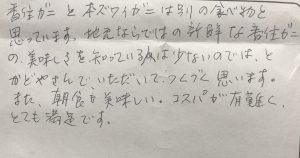 香住ガニと本ズワイガニは別の食べ物と
思っています。地元ならではの新鮮な香住ガニ
の、美味しさを知っている人は少ないのでは、と
かどやさんで、いただいて、つくづく思います。
また、朝食も美味しい。コスパが有難く、
とても満足です。